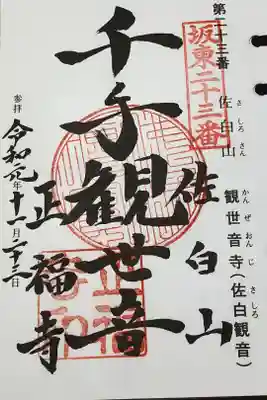 第二十三番 佐白山 観世音寺(佐白観音)
さしろさん かんぜおんじ さしろ
坂東二十三番
佐白山
千手観世音
正福寺
参拝 令和元年十一月二十三日